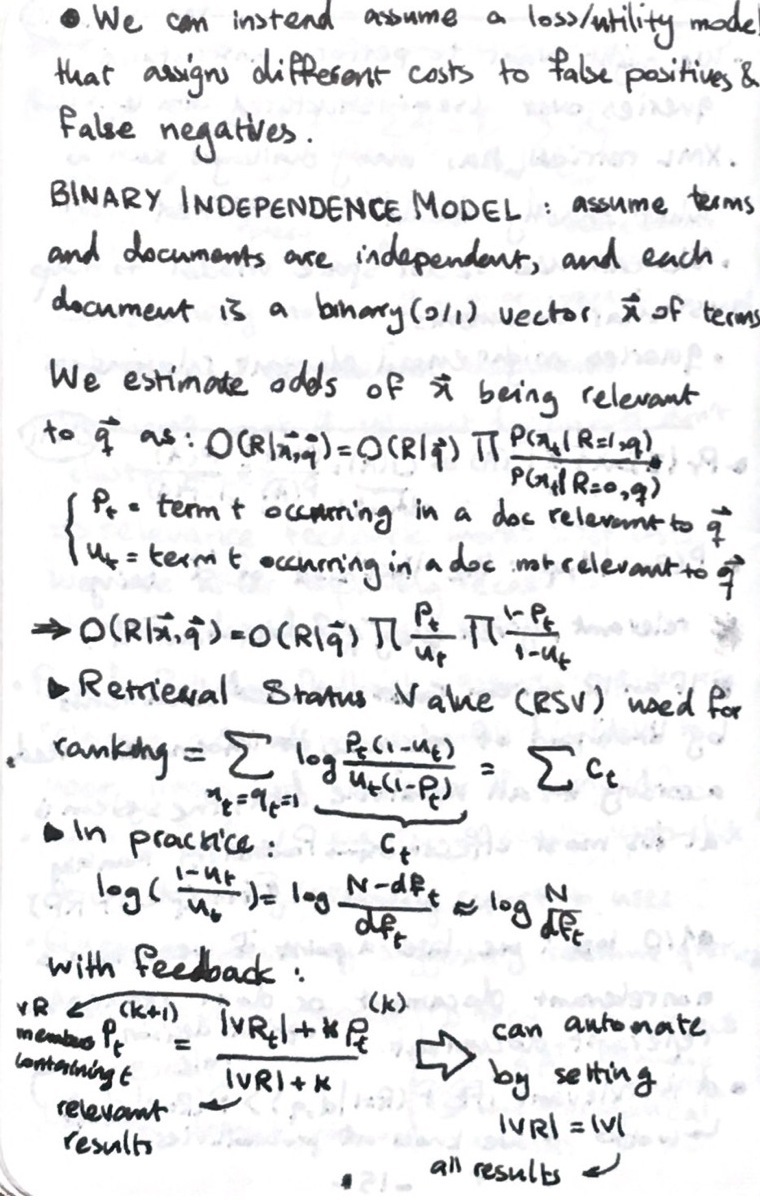 • We can instead assume a loss/utility model
that assigns different costs to false positives &
false negatives.
BINARY INDEPENDENCE MODEL : assume terms
and documents are independent, and each
document is a binary (0/1) vector x⃗ of terms
We estimate odds of x⃗ being relevant
to q⃗ as : O(R|x⃗,q⃗) = O(R|q⃗) Π P(xₜ|R=1,q) / P(xₜ|R=0,q)
{ Pₜ = term t occurring in a doc relevant to q⃗
uₜ = term t occurring in a doc not relevant to q⃗
⇒ O(R|x⃗,q⃗) = O(R|q⃗) Π Pₜ/uₜ · Π 1-Pₜ/1-uₜ
▶ Retrieval Status Value (RSV) used for
ranking = Σ xₜ=qₜ=1 log Pₜ(1-uₜ)/uₜ(1-Pₜ) = Σ cₜ
cₜ
▶ In practice :
log(1-uₜ/uₜ) = log N-dfₜ/dfₜ ≈ log N/dfₜ
with feedback :
Pₜ^(k+1) = |VRₜ| + κ Pₜ^(k) / |VR| + κ
VR members containing t
relevant results
⇨ can automate
by setting
|VR| = |V|
all results